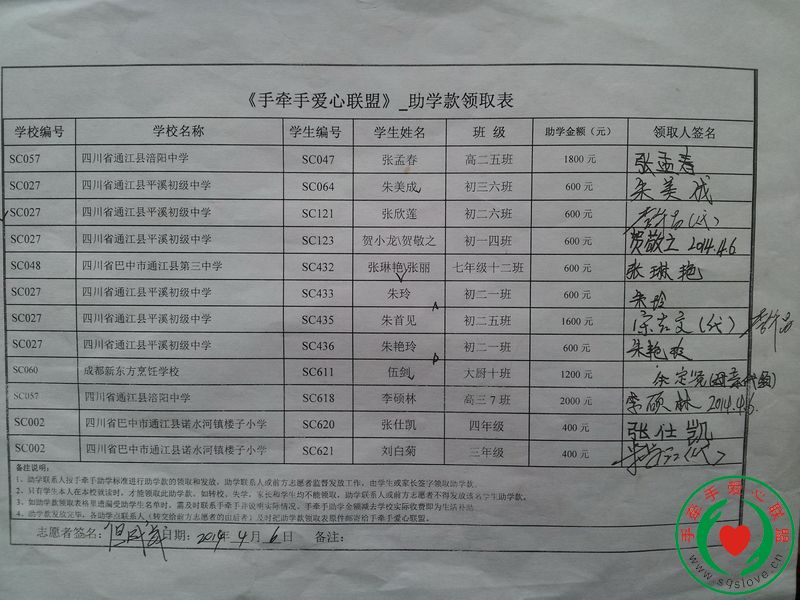 《手牵手爱心联盟》_助学款领取表
学校编号 学校名称 学生编号 学生姓名 班 级 助学金额（元） 领取人签名
SC057 四川省通江县涪阳中学 SC047 张孟春 高二五班 1800 元 张孟春
SC027 四川省通江县平溪初级中学 SC064 朱美成 初三六班 600 元 朱美成
SC027 四川省通江县平溪初级中学 SC121 张欣莲 初二六班 600 元 (代)
SC027 四川省通江县平溪初级中学 SC123 贺小龙\贺敬之 初一四班 600 元 贺敬之 2014.4.6
SC048 四川省巴中市通江县第三中学 SC432 张琳艳\张丽 七年级十二班 600 元 张琳艳
SC027 四川省通江县平溪初级中学 SC433 朱玲 初二一班 600 元 朱玲
SC027 四川省通江县平溪初级中学 SC435 朱首见 初二五班 1600 元 (代)
SC027 四川省通江县平溪初级中学 SC436 朱艳玲 初二一班 600 元 朱艳玲
SC060 成都新东方烹饪学校 SC611 伍剑 大厨十班 1200 元
SC057 四川省通江县涪阳中学 SC618 李硕林 高三 7 班 2000 元 李硕林 2014.4.6.
SC002 四川省巴中市通江县诺水河镇楼子小学 SC620 张仕凯 四年级 400 元 张仕凯
SC002 四川省巴中市通江县诺水河镇楼子小学 SC621 刘白菊 三年级 400 元 (代)
备注说明：
1、助学联系人按手牵手助学标准进行助学款的领取和发放，助学联系人或前方志愿者监督发放工作，由学生或家长签字领取助学款。
2、只有学生本人在本校就读时，才能领取此助学款，如转校、失学，家长和学生均不能领取，助学联系人或前方志愿者不得发放该名学生助学款。
3、如助学款领取表格里遗漏受助学生名单时，需及时联系手牵手并说明实际情况，手牵手助学金额减去学校实际收费即为生活补助。
4、助学款发放完毕，各助学点联系人（转交给前方志愿者的由后者）及时把助学款领取表原件邮寄给手牵手爱心联盟。
志愿者签名： 日期：2014年 4月 6日 备注：
手牵手爱心联盟
www.sqslove.cn